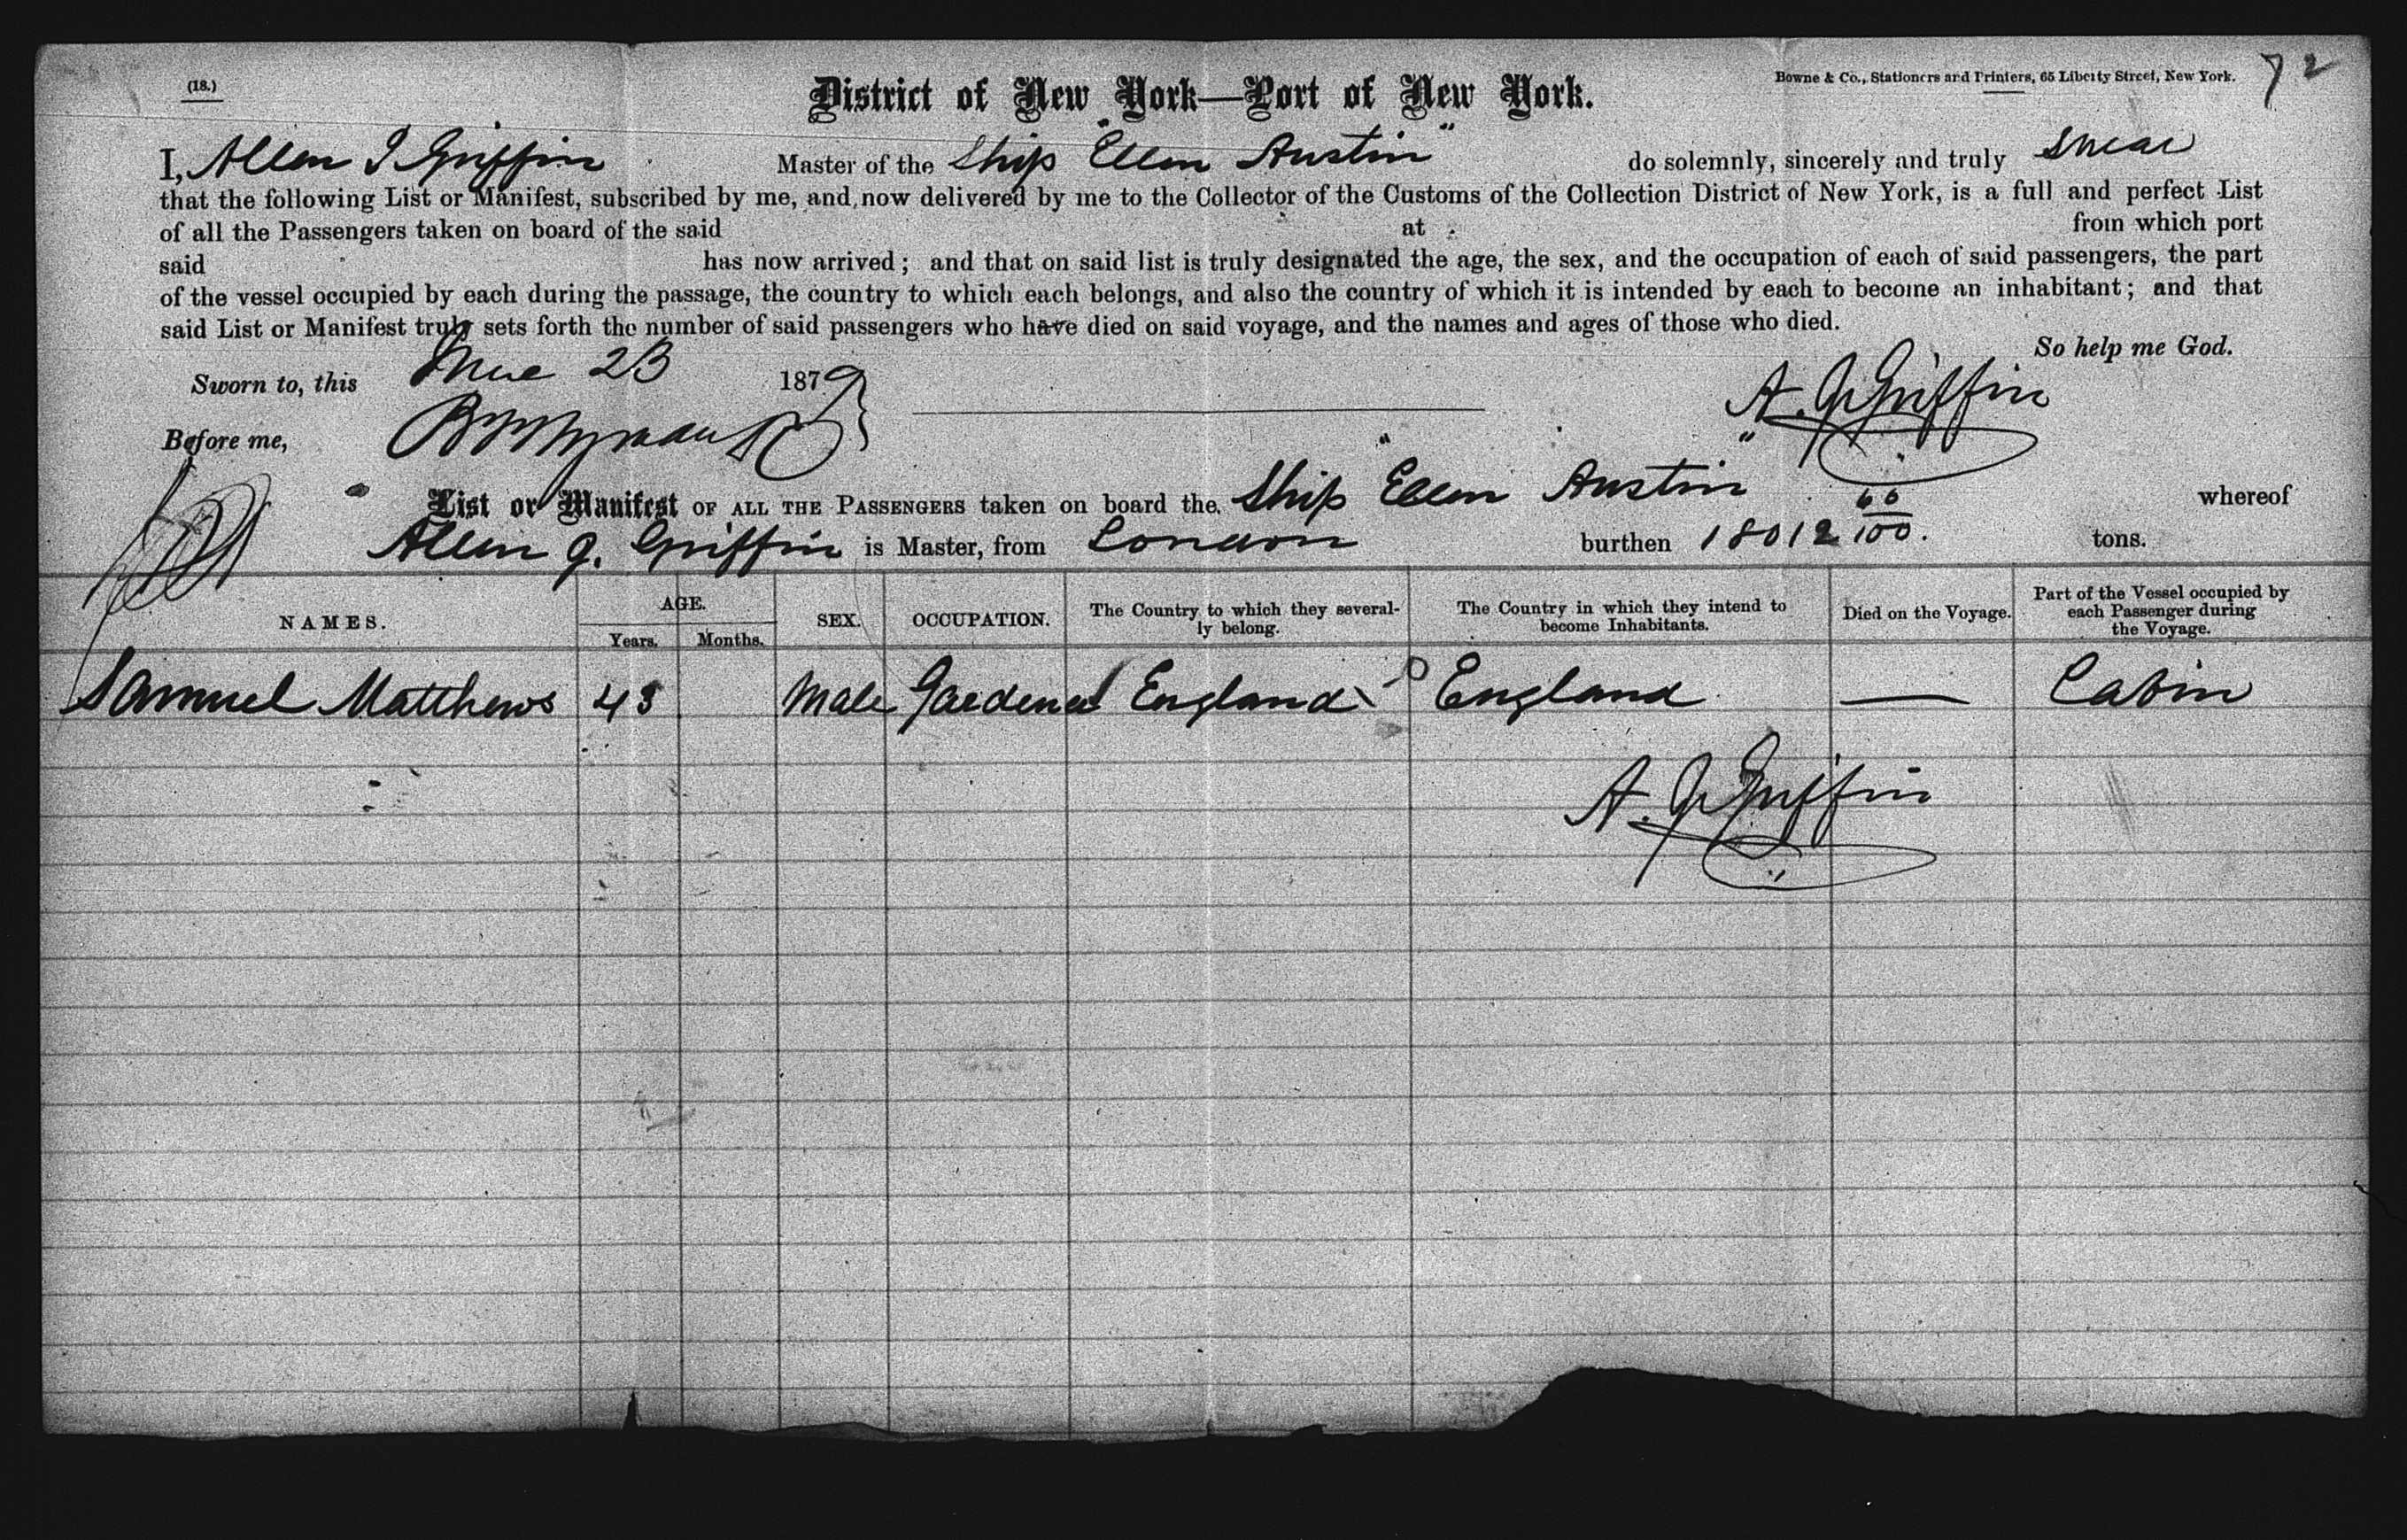 (18.)
District of New York—Port of New York.
Bowne & Co., Stationers and Printers, 65 Liberty Street, New York.
72
I, Allen J Griffin Master of the Ship "Ellen Austin" do solemnly, sincerely and truly swear
that the following List or Manifest, subscribed by me, and now delivered by me to the Collector of the Customs of the Collection District of New York, is a full and perfect List
of all the Passengers taken on board of the said at from which port
said has now arrived; and that on said list is truly designated the age, the sex, and the occupation of each of said passengers, the part
of the vessel occupied by each during the passage, the country to which each belongs, and also the country of which it is intended by each to become an inhabitant; and that
said List or Manifest truly sets forth the number of said passengers who have died on said voyage, and the names and ages of those who died.
So help me God.
Sworn to, this 23 1879
A. J. Griffin
Before me,
List or Manifest OF ALL THE PASSENGERS taken on board the Ship "Ellen Austin" whereof
Allen J. Griffin is Master, from London burthen 1801 60/100. tons.
NAMES. AGE. Years. Months. SEX. OCCUPATION. The Country to which they severally belong. The Country in which they intend to become Inhabitants. Died on the Voyage. Part of the Vessel occupied by each Passenger during the Voyage.
Samuel Matthews 43 Male Gardener England England — Cabin
A. J. Griffin